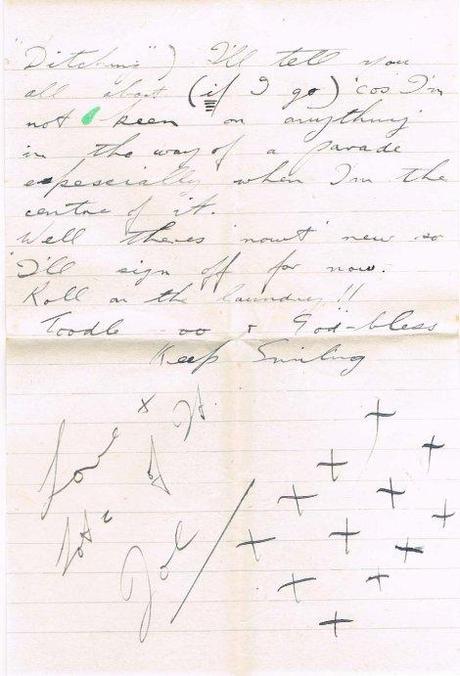 "Ditching") I'll tell you
all about (if I go) 'cos I'm
not keen on anything
in the way of a parade
especially when I'm the
centre of it.
Well theres 'nowt' new so
I'll sign off for now.
Roll on the laundry!!
Toodle oo & God-bless
Keep Smiling
Love &
lots of
Joe